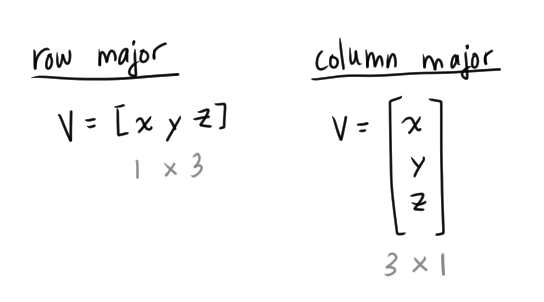 row major
V = [x y z]
1 x 3
column major
V = [x
y
z]
3 x 1